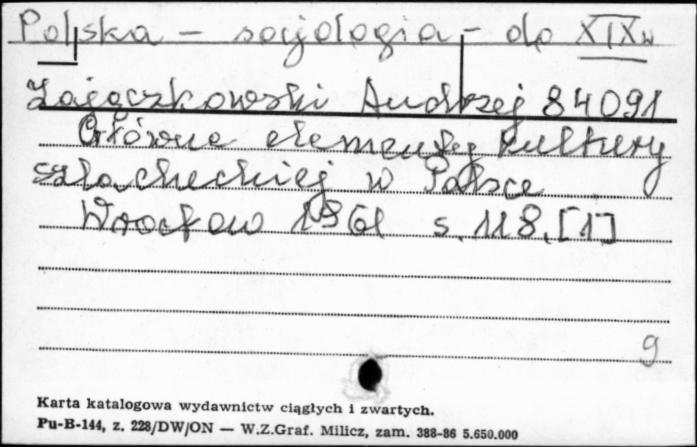 Polska - socjologia - do XIXw
Zajączkowski Andrzej 84091
Główne elementy kultury
szlacheckiej w Polsce
Wrocław 1961 s. 118, [1]
9
Karta katalogowa wydawnictw ciągłych i zwartych.
Pu-B-144, z. 228/DW/ON — W.Z.Graf. Milicz, zam. 388-86 5.650.000